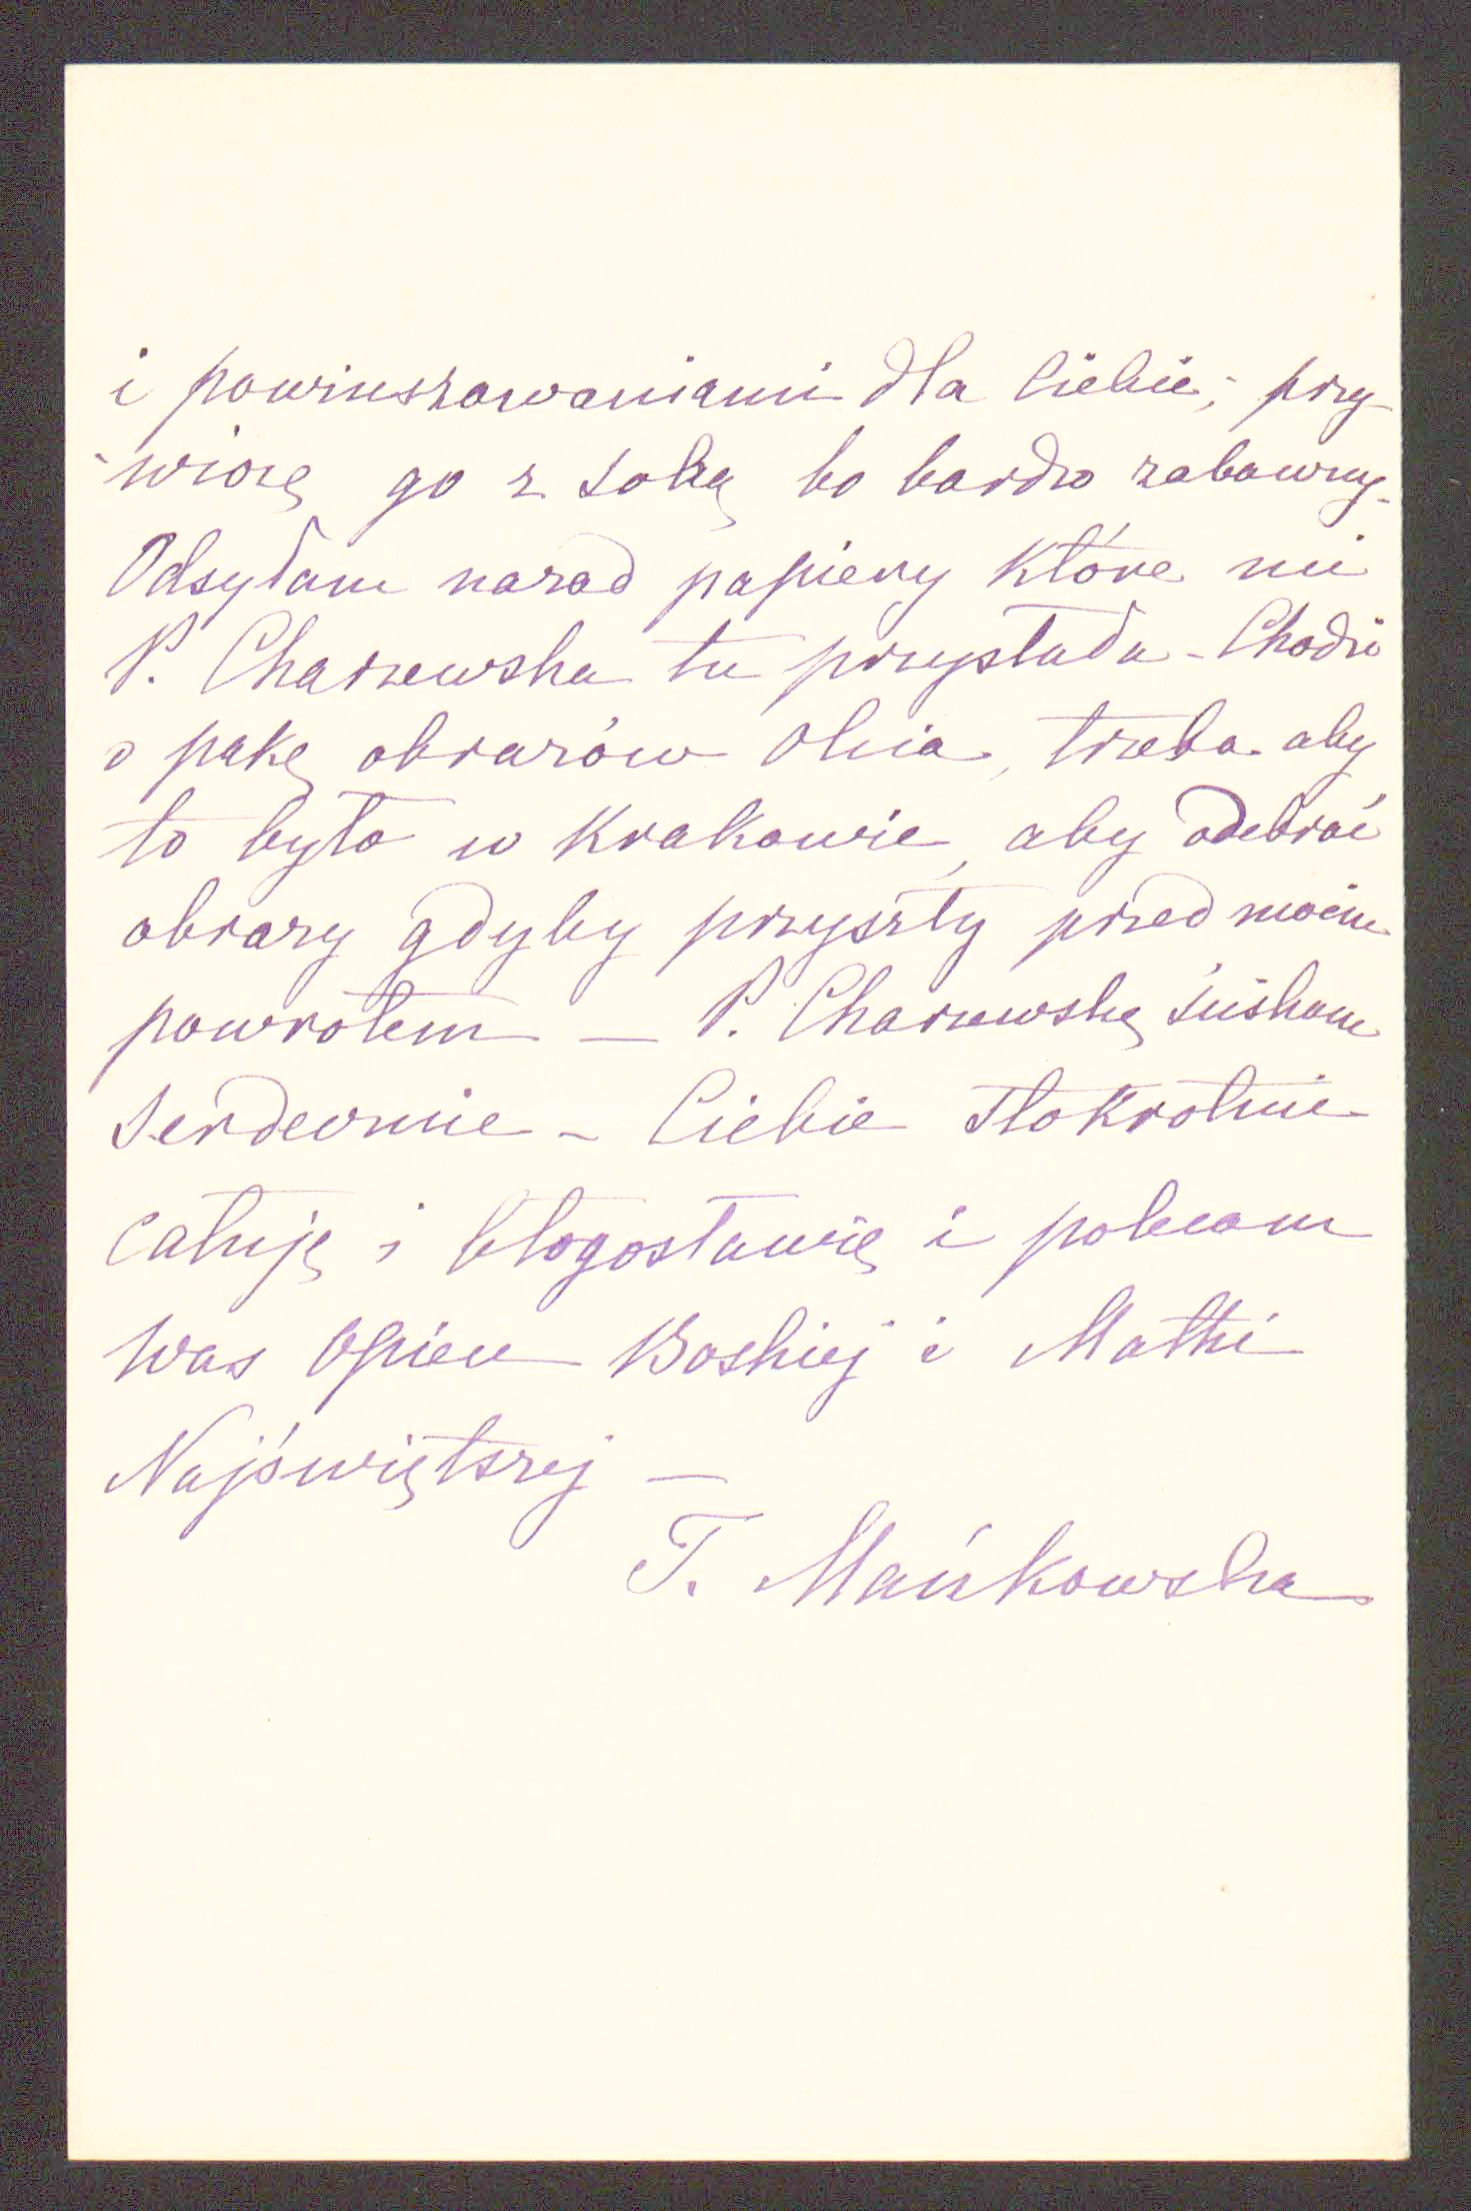 i powinszowaniami dla Ciebie; przy-
wiozę go z sobą bo bardzo zabawny.
Odsyłam nazad papiery które mi
P. Charzewska tu przysłała - Chodzi
o pakę obrazów Olsia, trzeba aby
to było w Krakowie, aby odebrać
obrazy gdyby przyszły przed moim
powrotem — P. Charzewskę ściskam
Serdecznie - Ciebie stokrotnie
Całuję i błogosławię i polecam
Was Opiece Boskiej i Matki
Najświętszej —
T. Mańkowska